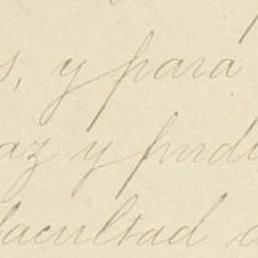 s, y para
az y pudi
facultad d